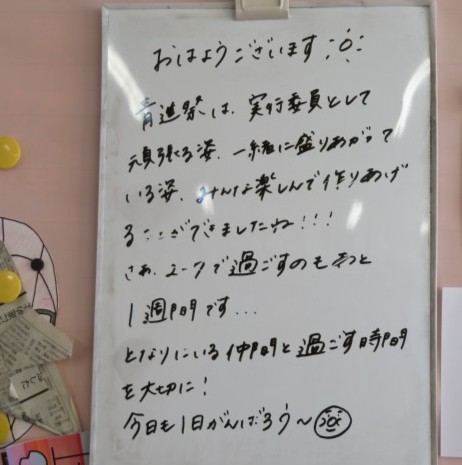 おはようございます
青進祭は、実行委員として
頑張る姿、一緒に盛りあがって
いる姿、みんな楽しんで作りあげ
ることができましたね!!!
さあ、2-7で過ごすのもあと
1週間です...
となりにいる仲間と過ごす時間
を大切に!
今日も1日がんばろう〜